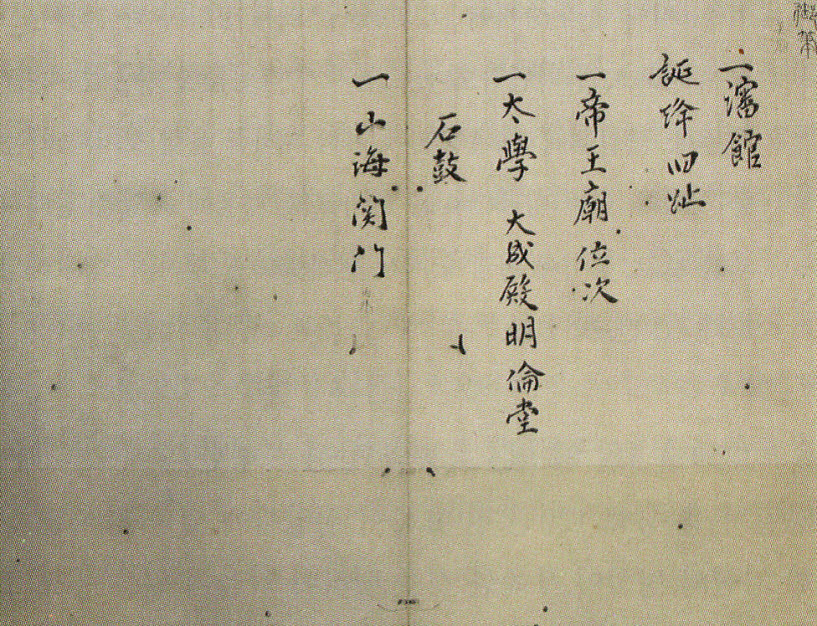 御筆
一瀋館
誕降旧趾
一帝王廟位次
一太學 大成殿明倫堂
石鼓
一山海関门